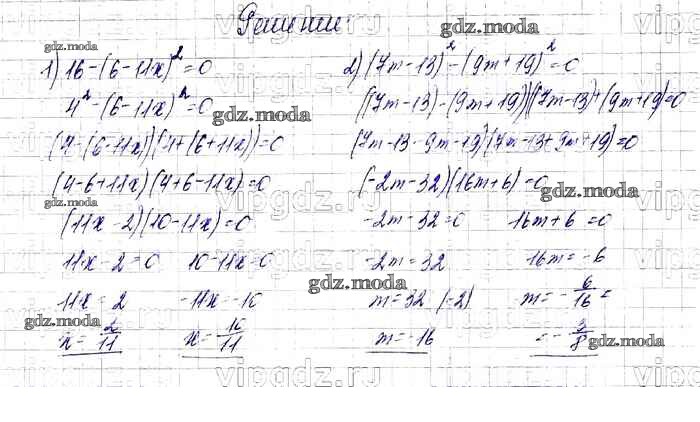 Решение:
1) 16-(6-11x)²=0
4²-(6-11x)²=0
(4-(6-11x))(4+(6+11x))=0
(4-6+11x)(4+6-11x)=0
(11x-2)(10-11x)=0
11x-2=0 10-11x=0
11x=2 -11x=-10
x=2/11 x=10/11
2) (7m-13)²-(9m+19)²=0
((7m-13)-(9m+19))((7m-13)+(9m+19)=0
(7m-13-9m-19)(7m-13+9m+19)=0
(-2m-32)(16m+6)=0
-2m-32=0 16m+6=0
-2m=32 16m=-6
m=32:(-2) m=-6/16=
m=-16 =-3/8
gdz.moda
gdz.moda
gdz.moda
gdz.moda
gdz.moda
gdz.moda
gdz.moda
vipgdz.ru
vipgdz.ru
vipgdz.ru
vipgdz.ru